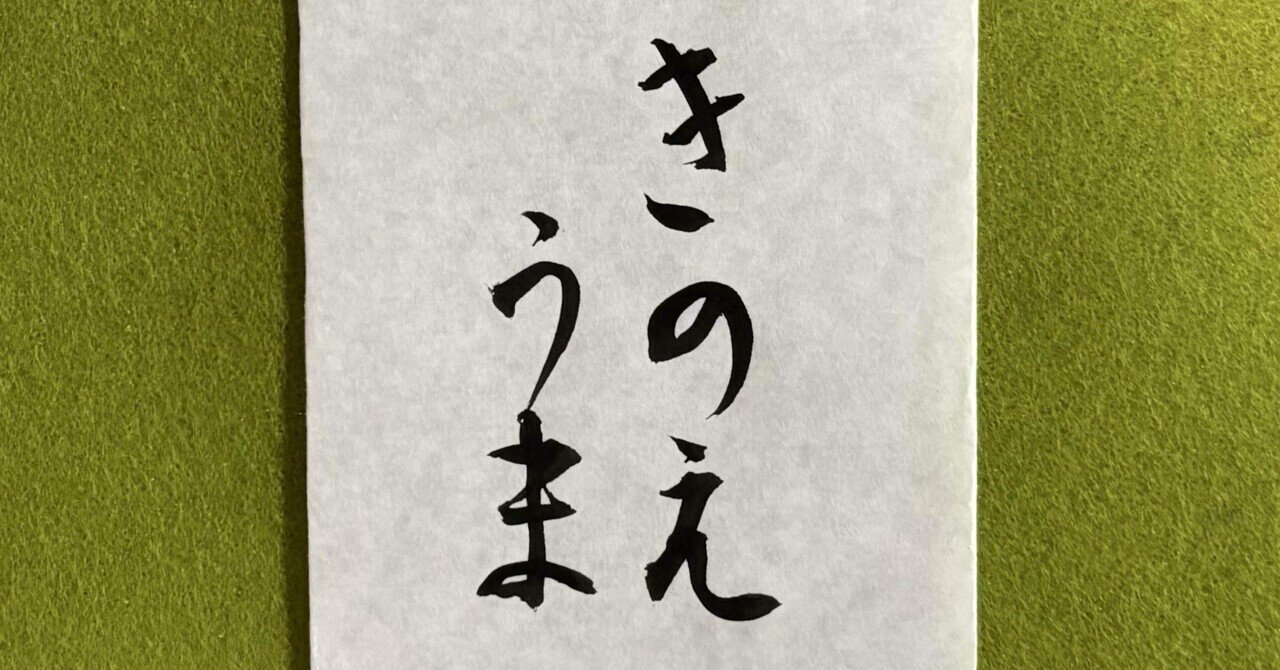 きのえ
うま